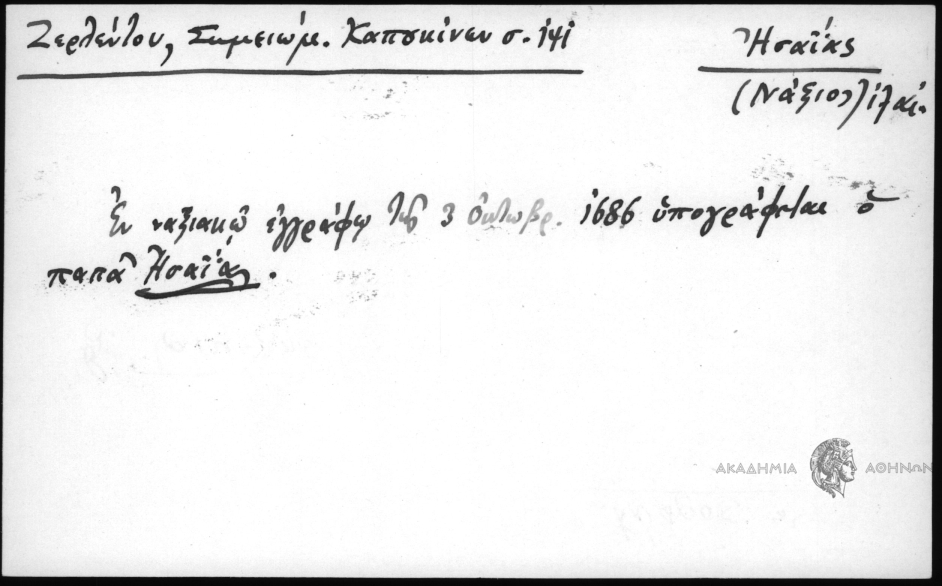 Ζερλέντου, Σημειώμ. Καπουκίνων σ. 141
Ἡσαΐας
(Νάξιος)
Ἐν ναξιακῷ ἐγγράφῳ τῆς 3 ὀκτωβρ. 1686 ὑπογράφεται ὁ
παπᾶ Ἡσαΐας.
ΑΚΑΔΗΜΙΑ ΑΘΗΝΩΝ